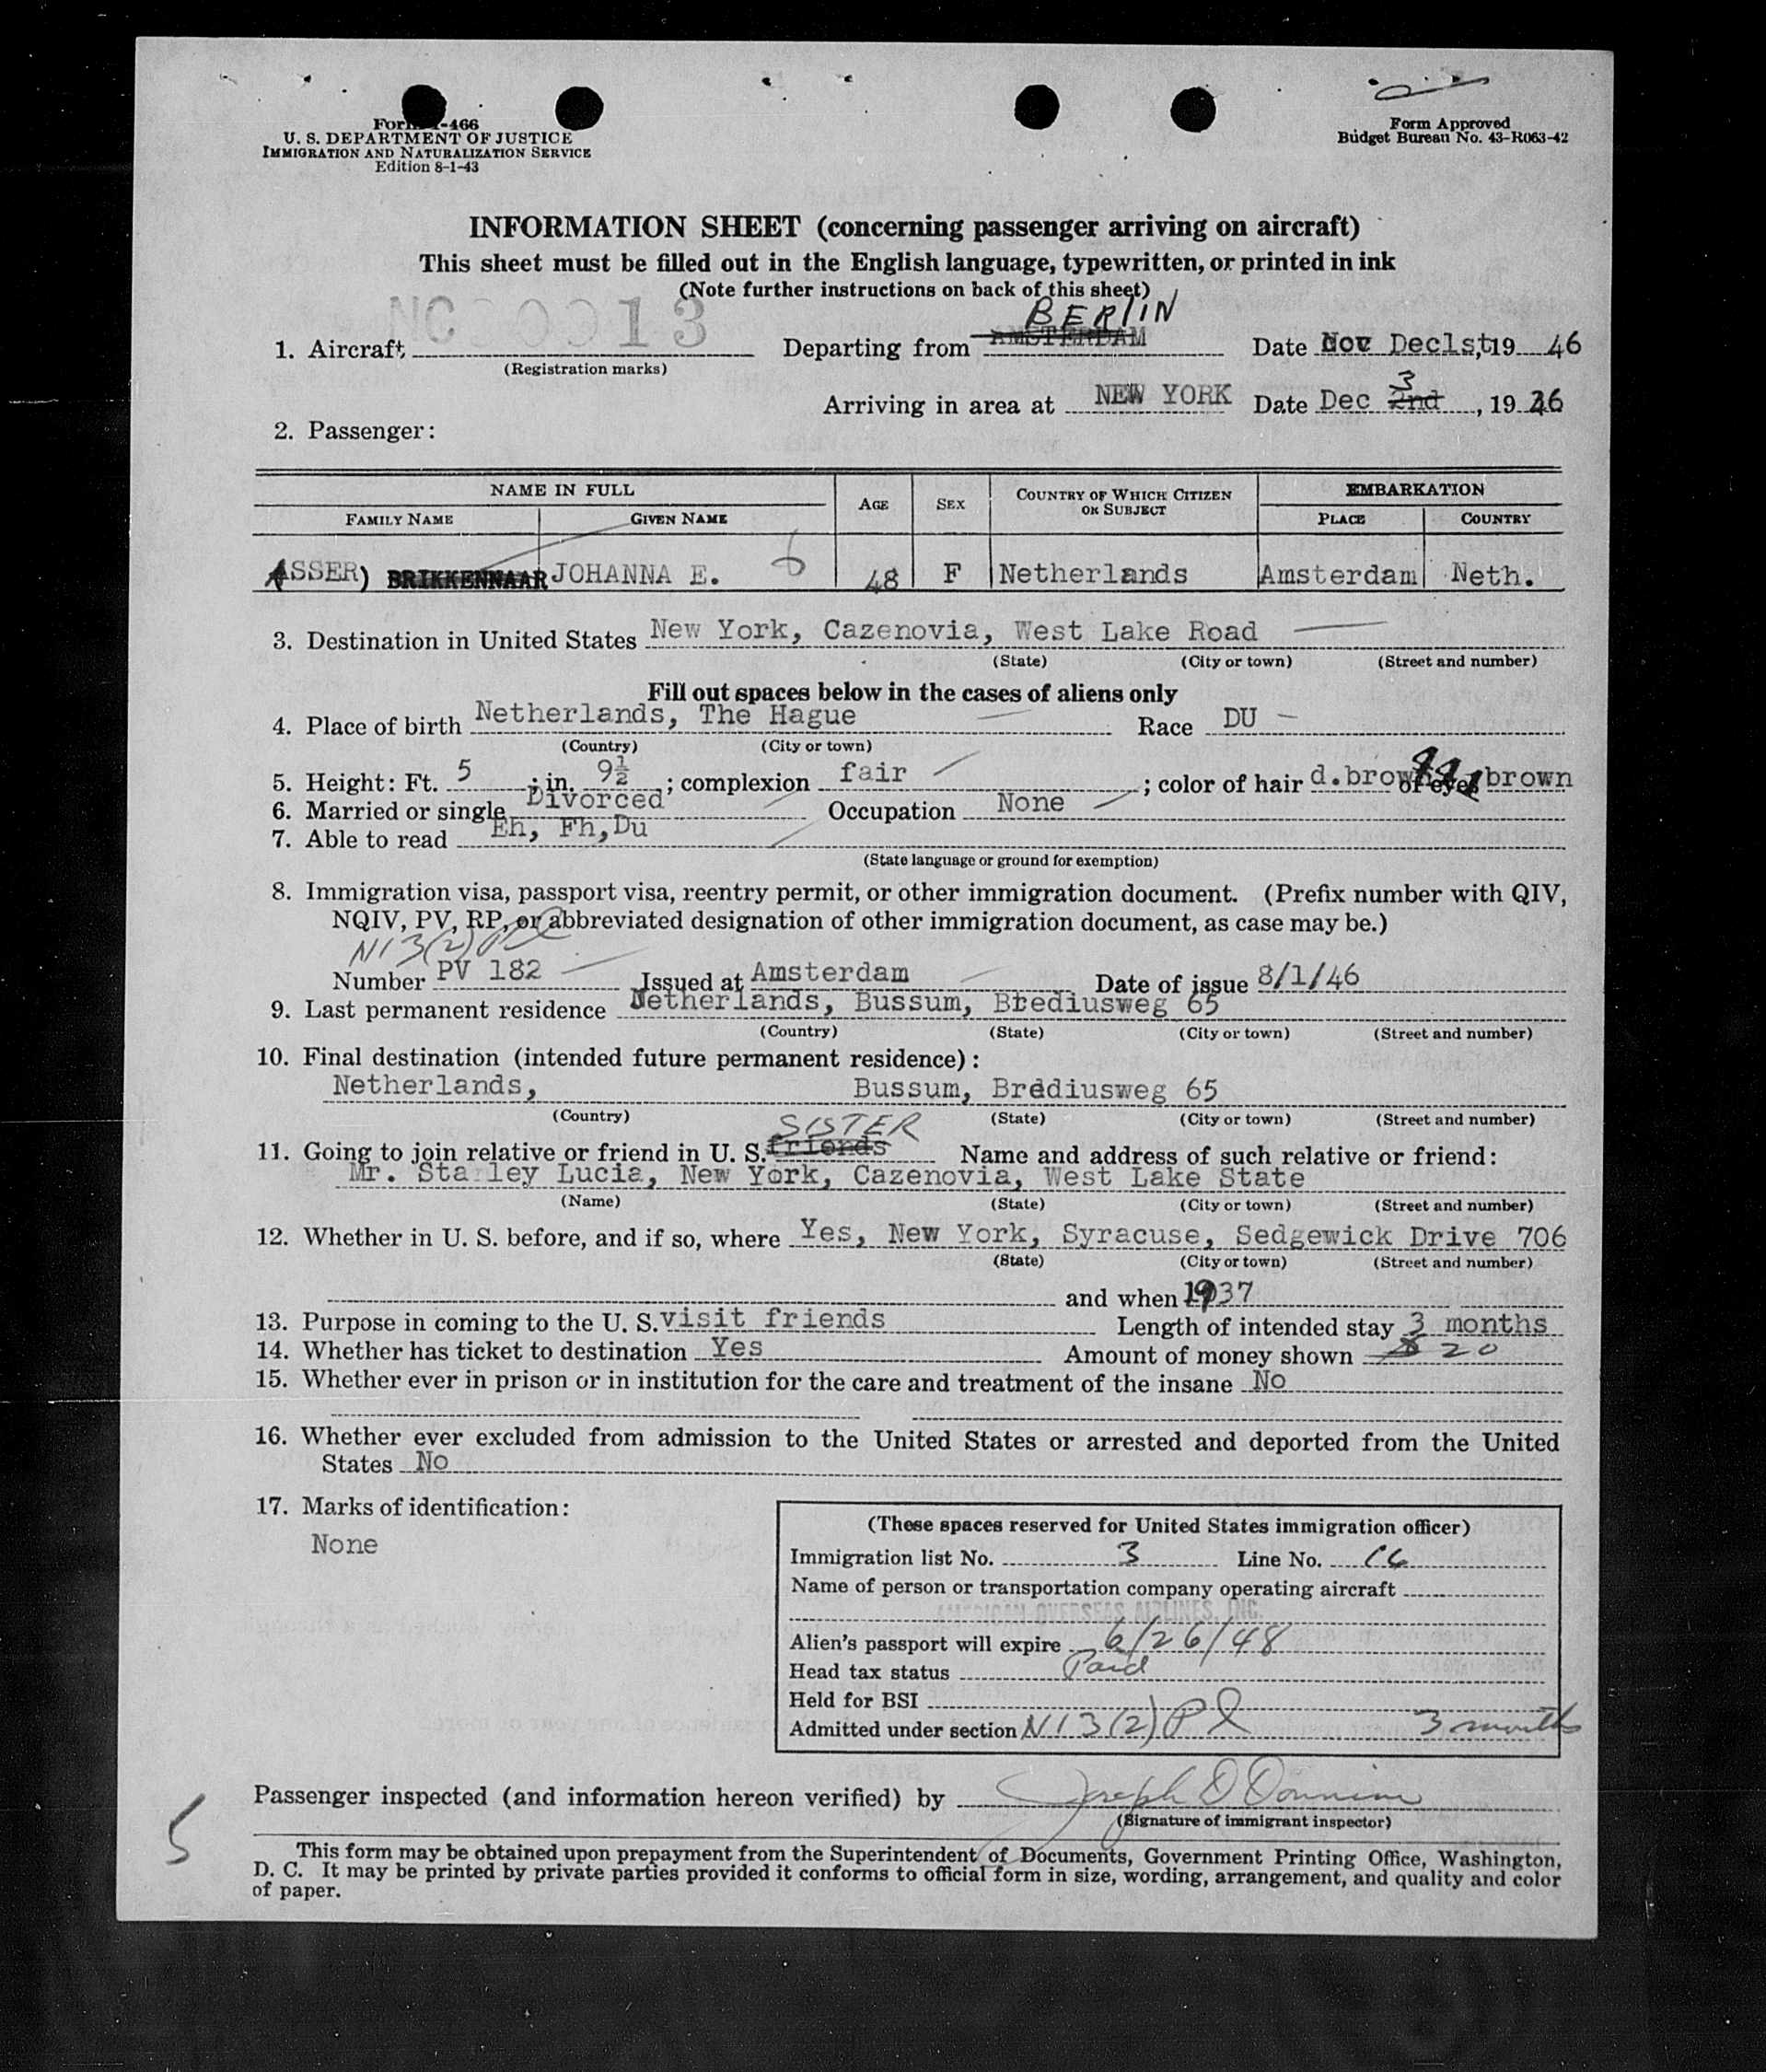 Form I-466
U. S. DEPARTMENT OF JUSTICE
IMMIGRATION AND NATURALIZATION SERVICE
Edition 8-1-43
Form Approved
Budget Bureau No. 43-R063-42
INFORMATION SHEET (concerning passenger arriving on aircraft)
This sheet must be filled out in the English language, typewritten, or printed in ink
(Note further instructions on back of this sheet)
NC 90913
BERLIN
1. Aircraft Departing from AMSTERDAM Date Nov Dec1st, 19 46
(Registration marks)
3
Arriving in area at NEW YORK Date Dec 2nd, 19 46
2. Passenger:
NAME IN FULL AGE SEX COUNTRY OF WHICH CITIZEN OR SUBJECT EMBARKATION
FAMILY NAME GIVEN NAME PLACE COUNTRY
ASSER) BRIKKENNAAR JOHANNA E. 6 48 F Netherlands Amsterdam Neth.
3. Destination in United States New York, Cazenovia, West Lake Road
(State) (City or town) (Street and number)
Fill out spaces below in the cases of aliens only
4. Place of birth Netherlands, The Hague Race DU
(Country) (City or town)
5. Height: Ft. 5; in. 9½; complexion fair; color of hair d.brown of eyes brown
6. Married or single Divorced Occupation None
7. Able to read Eh, Fh,Du
(State language or ground for exemption)
8. Immigration visa, passport visa, reentry permit, or other immigration document. (Prefix number with QIV,
NQIV, PV, RP, or abbreviated designation of other immigration document, as case may be.)
N13(2)Pl
Number PV 182 Issued at Amsterdam Date of issue 8/1/46
9. Last permanent residence Netherlands, Bussum, Brediusweg 65
(Country) (State) (City or town) (Street and number)
10. Final destination (intended future permanent residence):
Netherlands, Bussum, Brediusweg 65
(Country) (State) (City or town) (Street and number)
SISTER
11. Going to join relative or friend in U. S. friends Name and address of such relative or friend:
Mr. Stanley Lucia, New York, Cazenovia, West Lake State
(Name) (State) (City or town) (Street and number)
12. Whether in U. S. before, and if so, where Yes, New York, Syracuse, Sedgewick Drive 706
(State) (City or town) (Street and number)
and when 1937
13. Purpose in coming to the U. S. visit friends Length of intended stay 3 months
14. Whether has ticket to destination Yes Amount of money shown $ 20
15. Whether ever in prison or in institution for the care and treatment of the insane No
16. Whether ever excluded from admission to the United States or arrested and deported from the United
States No
17. Marks of identification:
None
(These spaces reserved for United States immigration officer)
Immigration list No. 3 Line No. 16
Name of person or transportation company operating aircraft
AMERICAN OVERSEAS AIRLINES, INC.
Alien's passport will expire 6/26/48
Head tax status Paid
Held for BSI
Admitted under section N13(2)Pl 3 months
Passenger inspected (and information hereon verified) by Joseph D
(Signature of immigrant inspector)
5
This form may be obtained upon prepayment from the Superintendent of Documents, Government Printing Office, Washington,
D. C. It may be printed by private parties provided it conforms to official form in size, wording, arrangement, and quality and color
of paper.